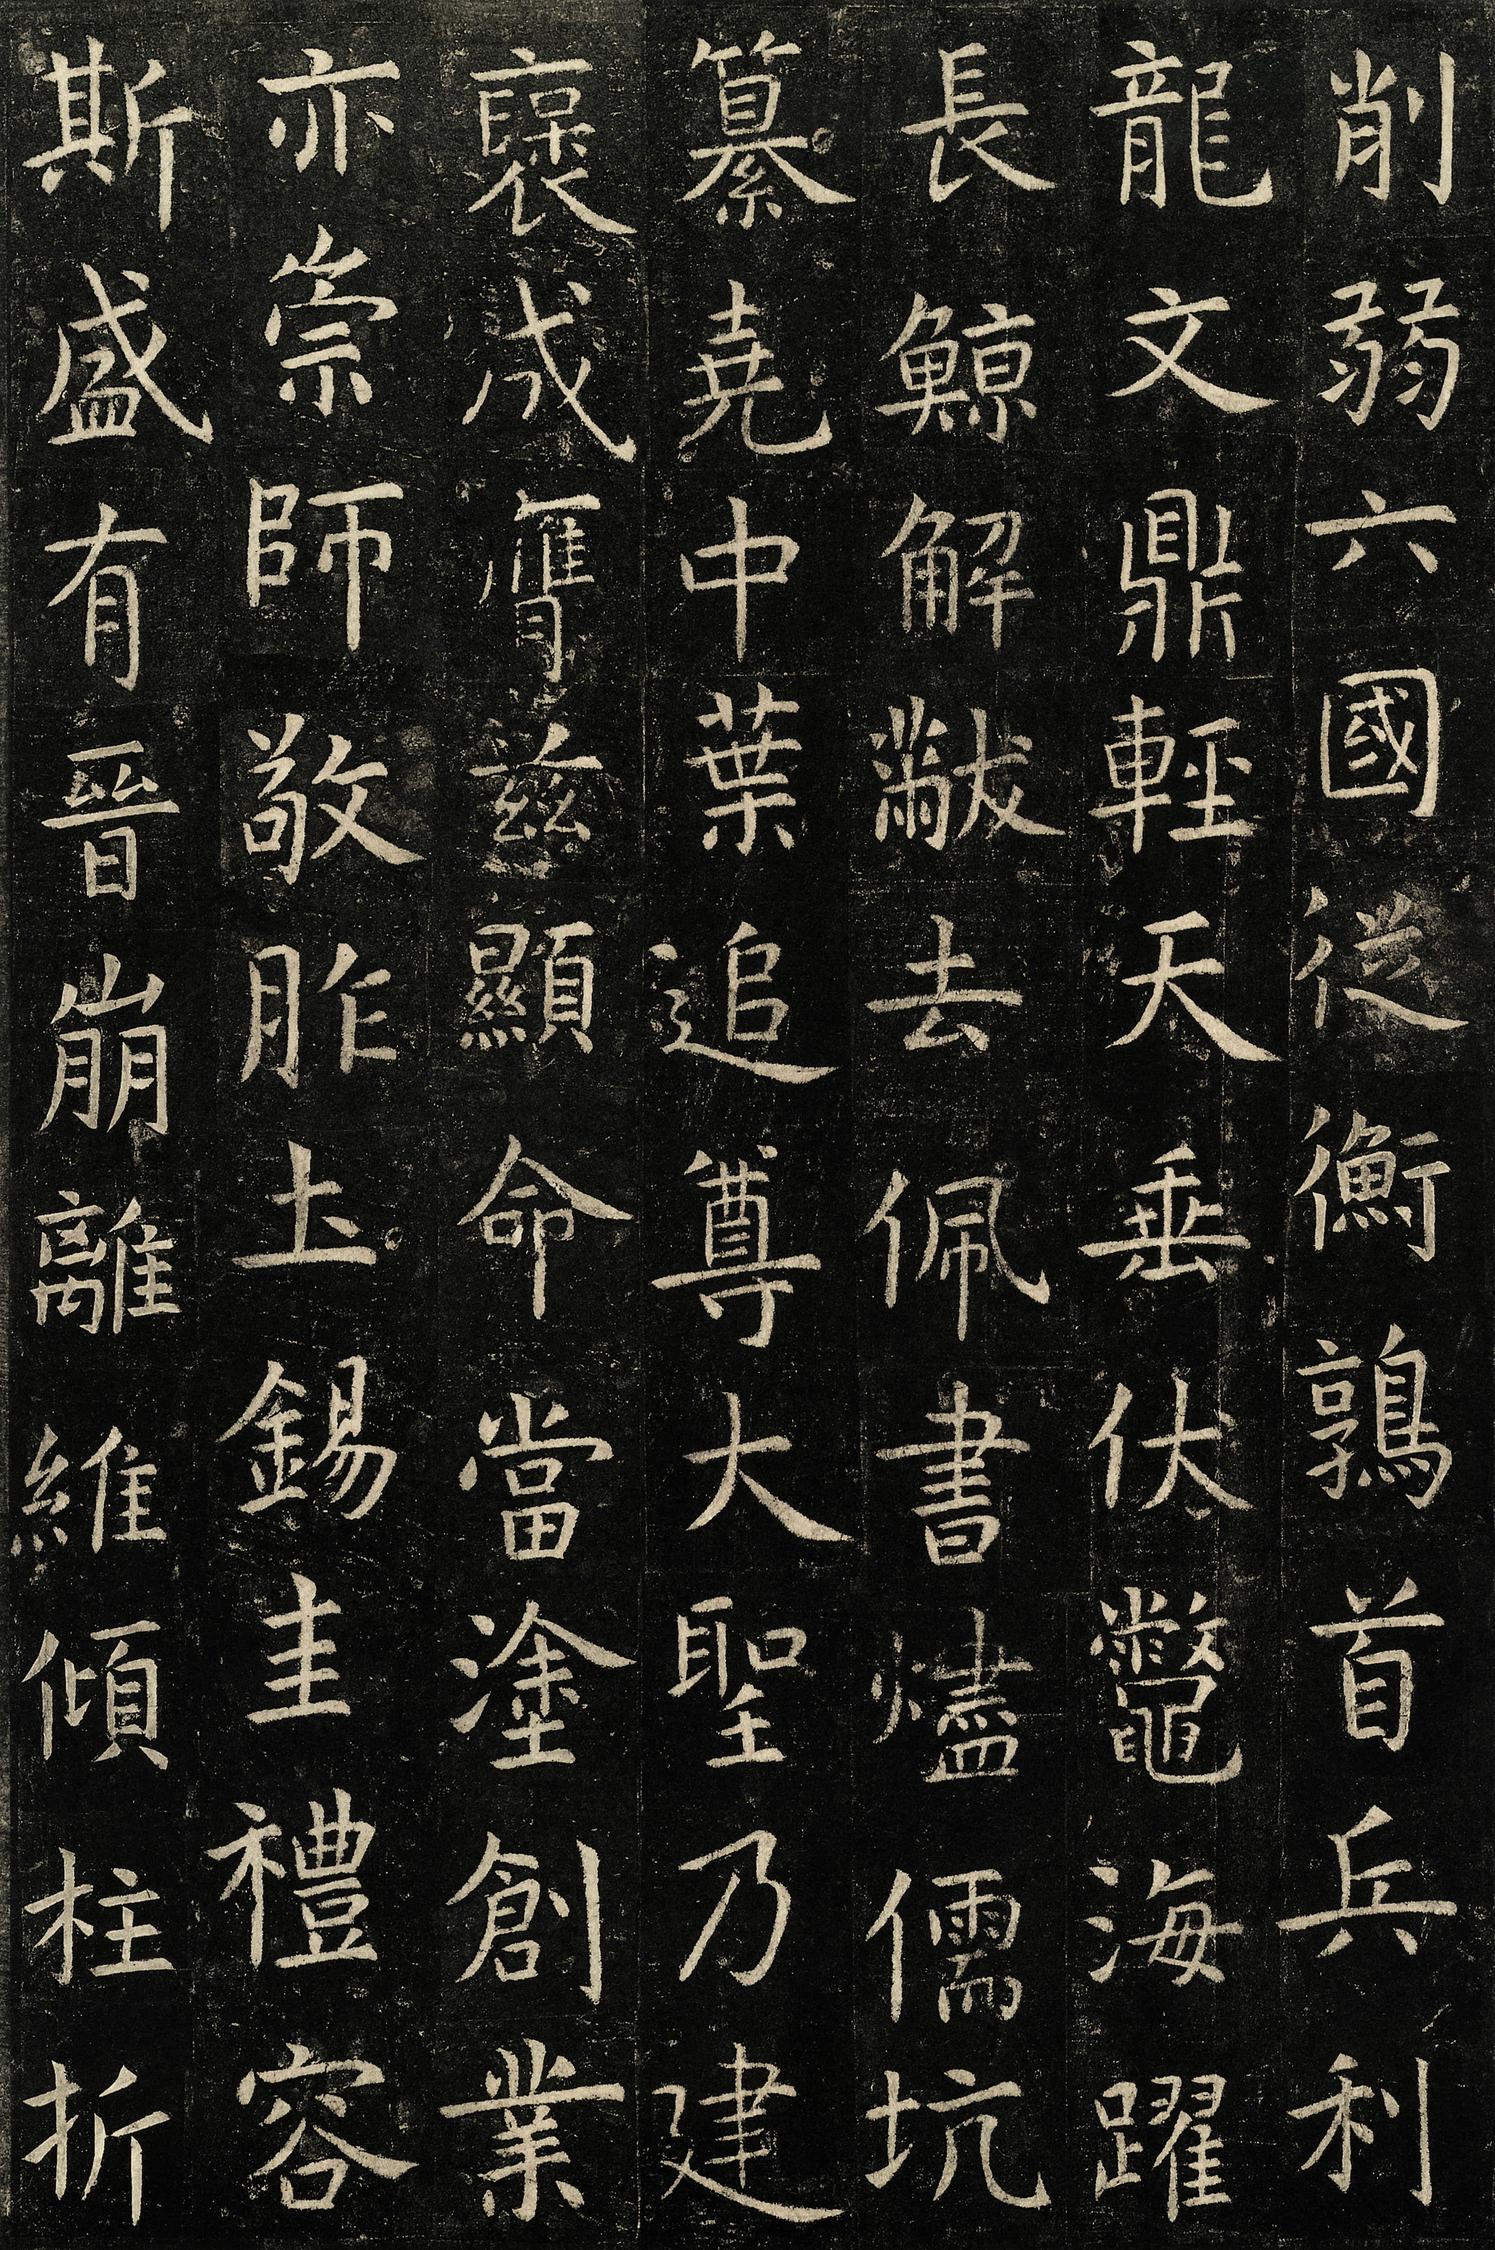 削弱六國從衡鶉首兵利
龍文鼎輕天垂伏鼈海躍
長鯨解黻去佩書燼儒坑
纂堯中葉追尊大聖乃建
襃成膺茲顯命當塗創業
亦崇師敬胙土錫圭禮容
斯盛有晉崩離維傾柱折